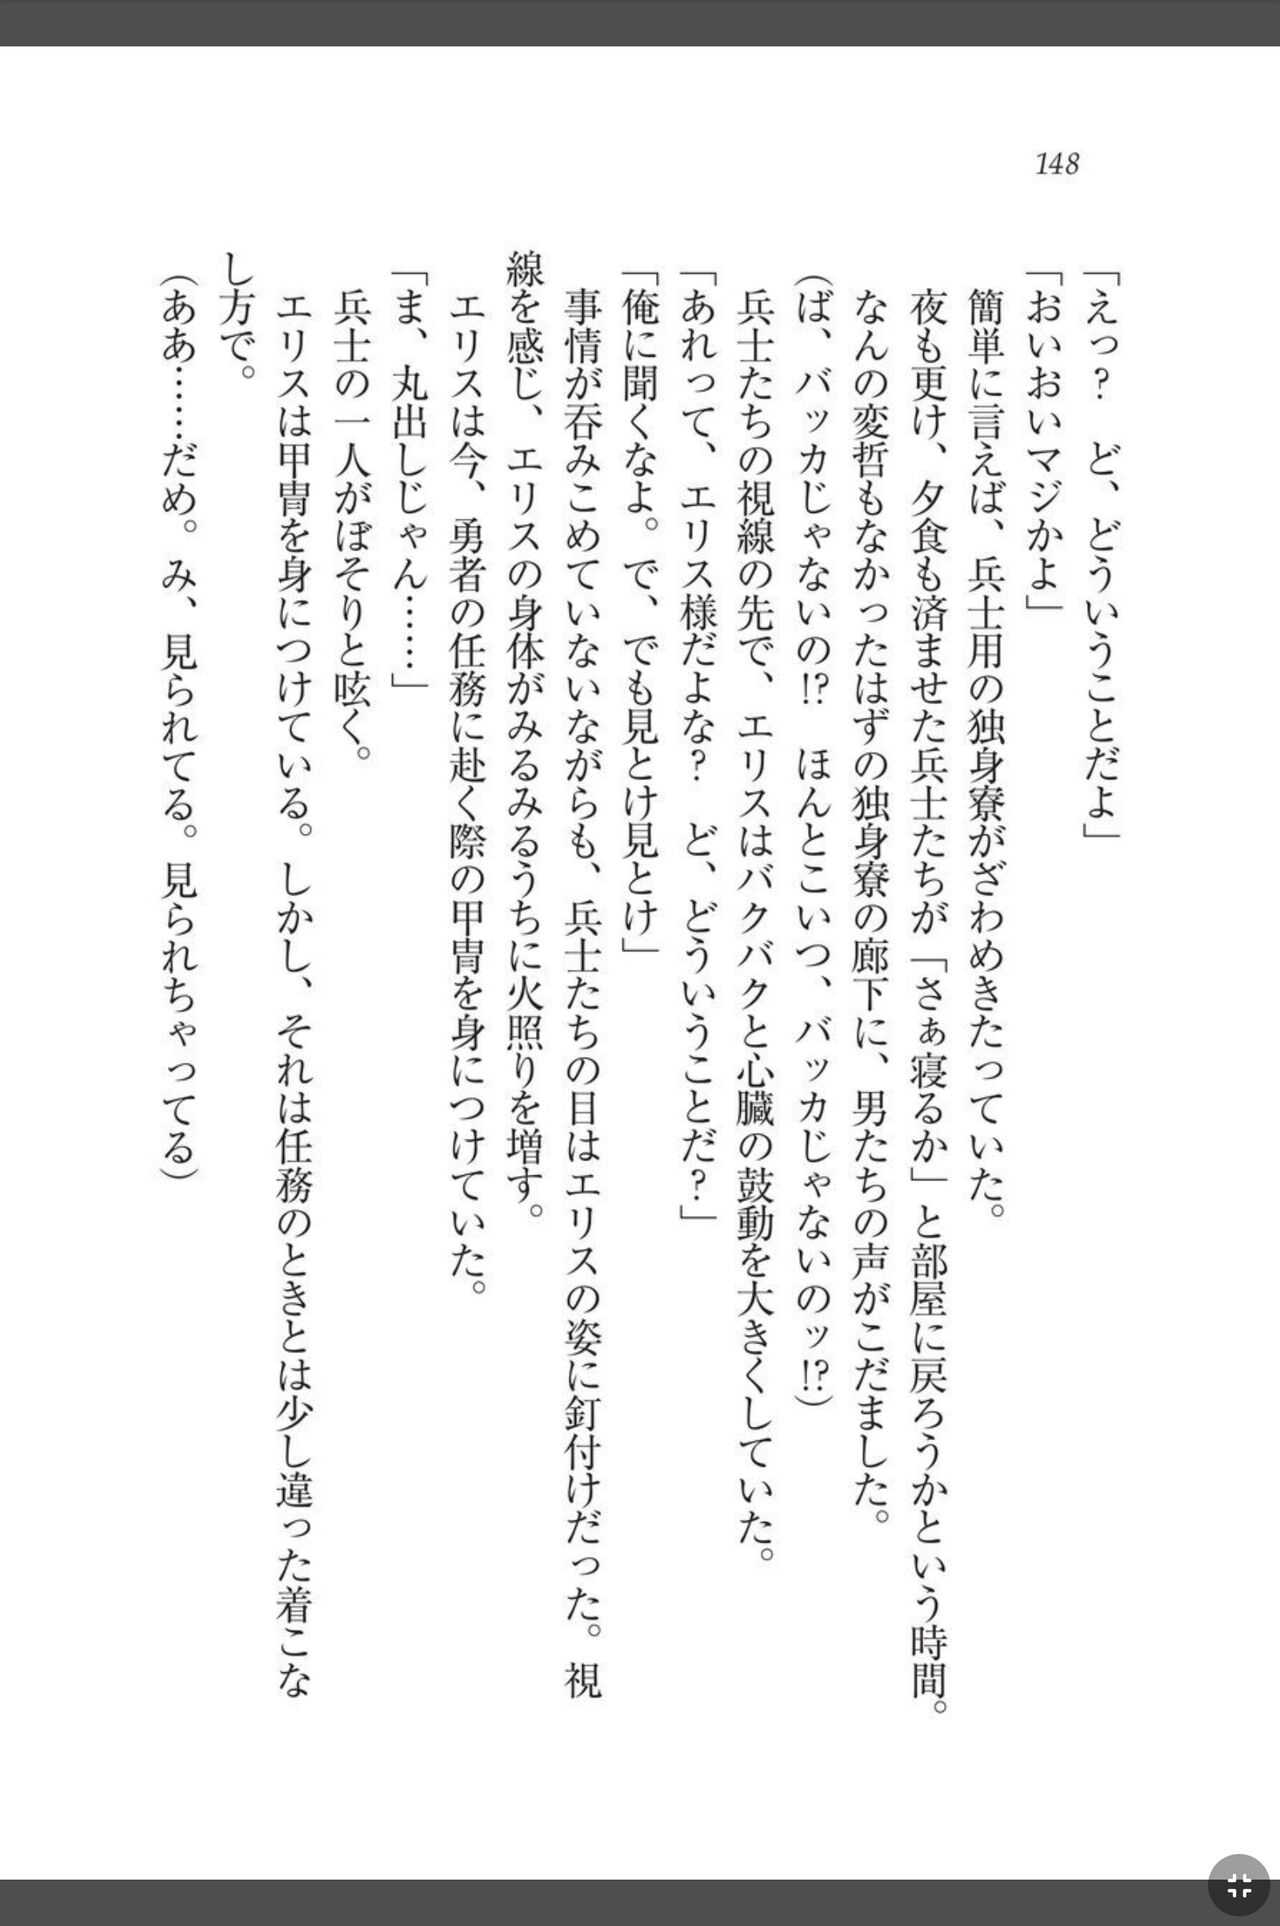 148
「えっ？　ど、どういうことだよ」
「おいおいマジかよ」
簡単に言えば、兵士用の独身寮がざわめきたっていた。
夜も更け、夕食も済ませた兵士たちが「さぁ寝るか」と部屋に戻ろうかという時間。
なんの変哲もなかったはずの独身寮の廊下に、男たちの声がこだました。
（ば、バッカじゃないの!?　ほんとこいつ、バッカじゃないのッ!?）
兵士たちの視線の先で、エリスはバクバクと心臓の鼓動を大きくしていた。
「あれって、エリス様だよな？　ど、どういうことだ？」
「俺に聞くなよ。で、でも見とけ見とけ」
事情が呑みこめていないながらも、兵士たちの目はエリスの姿に釘付けだった。視
線を感じ、エリスの身体がみるみるうちに火照りを増す。
エリスは今、勇者の任務に赴く際の甲冑を身につけていた。
「ま、丸出しじゃん……」
兵士の一人がぼそりと呟く。
エリスは甲冑を身につけている。しかし、それは任務のときとは少し違った着こな
し方で。
（ああ……だめ。み、見られてる。見られちゃってる）